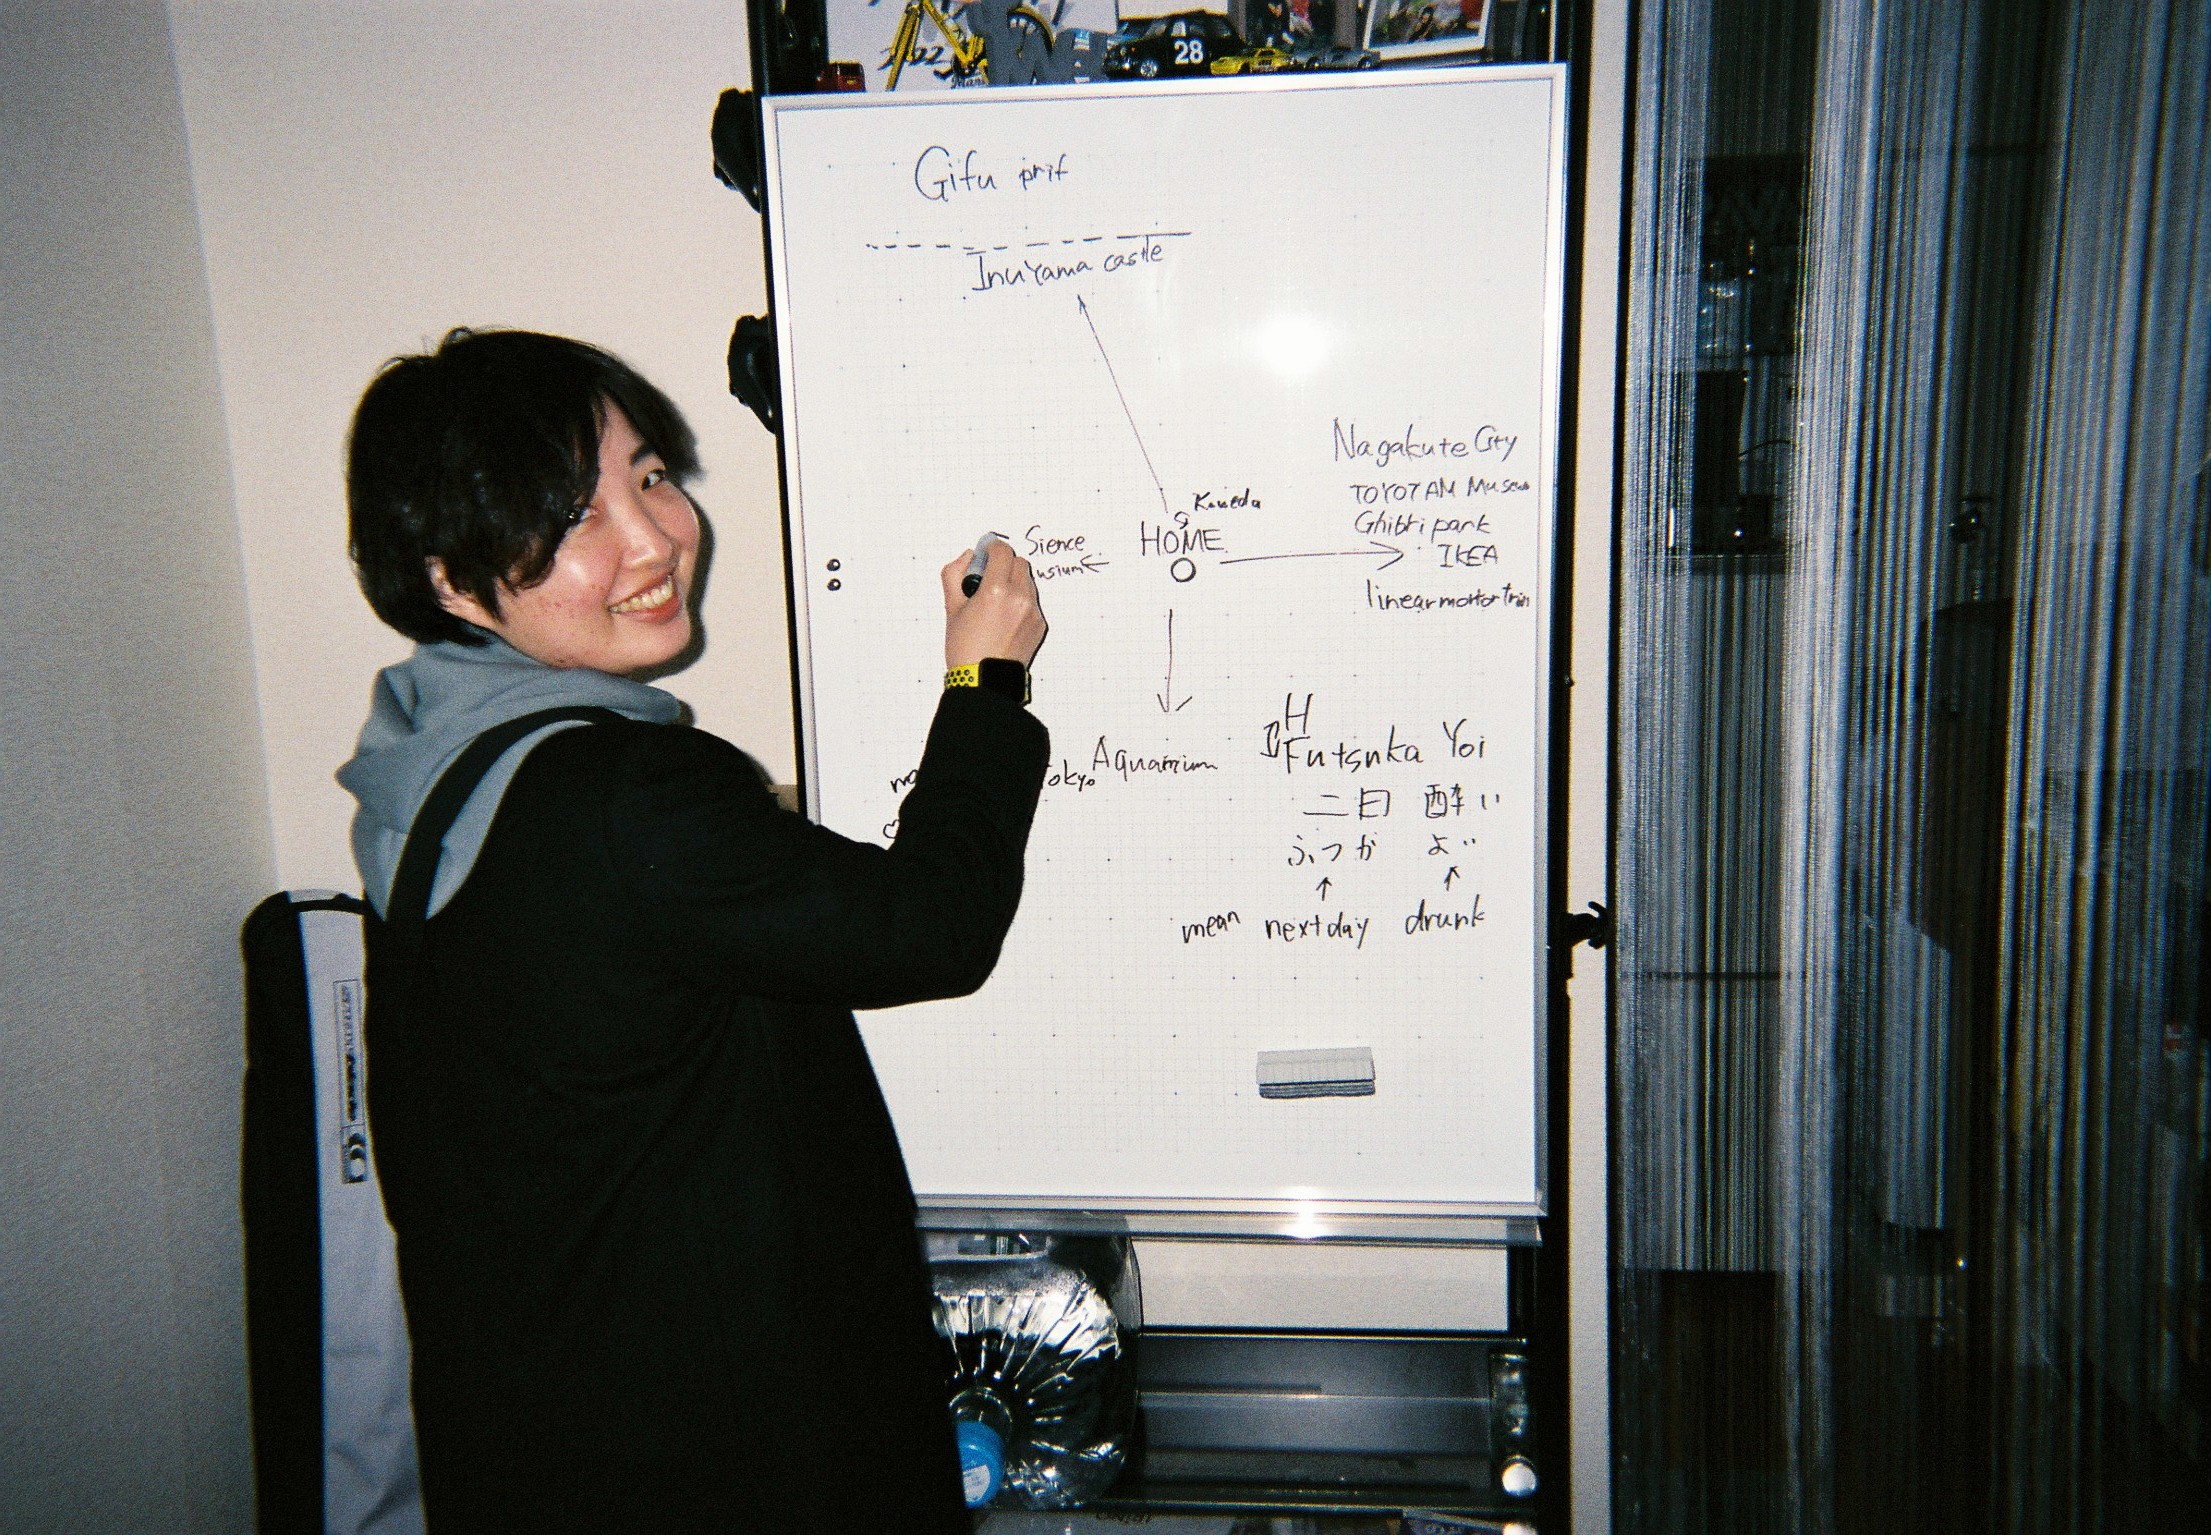 28
Gifu prif
Inuyama castle
Nagakute City
TOYOTAM Museu
Ghibri park
IKEA
linear mortor trin
Kaneda
HOME
Sience
usium
Aquarium
okyo
H
Futsuka Yoi
二日 酔い
ふつか よい
mean next day drunk